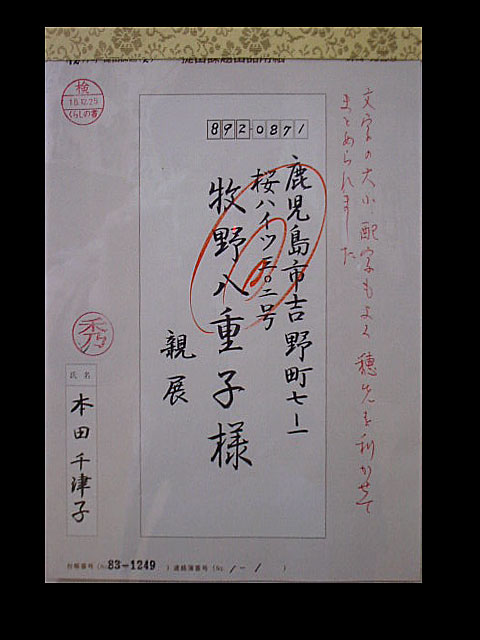 提出課題出品用紙
検
18.12.25
くらしの書
文字の大小 配字もよく 穂先を利かせて
まとめられました
892-0871
鹿児島市吉野町七ー一
桜ハイツ五〇二号
牧野八重子様
親展
秀
氏名
本田千津子
台帳番号(No.83-1249)連絡簿番号(No.1-1)